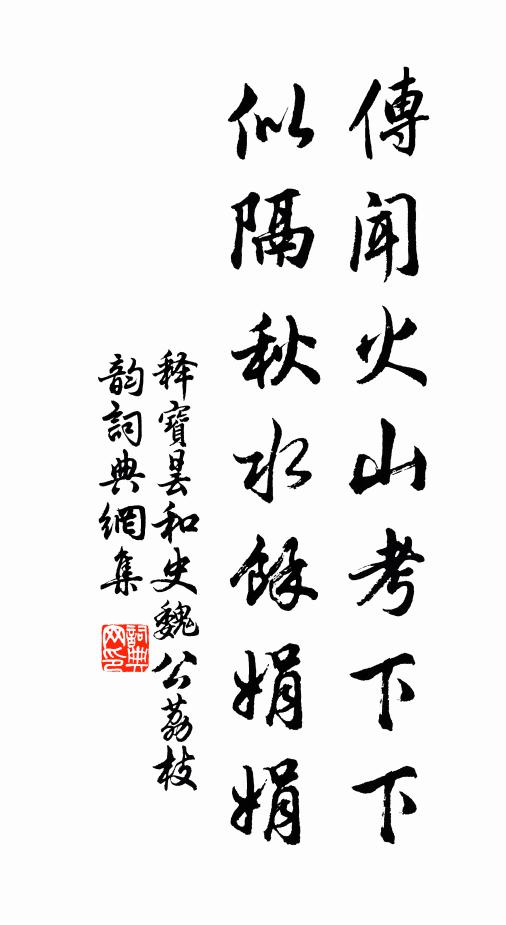 傳聞火山考下下
似隔秋水餘娟娟
释寶曇和史魏公荔枝
韵詞典網集
詞典网印